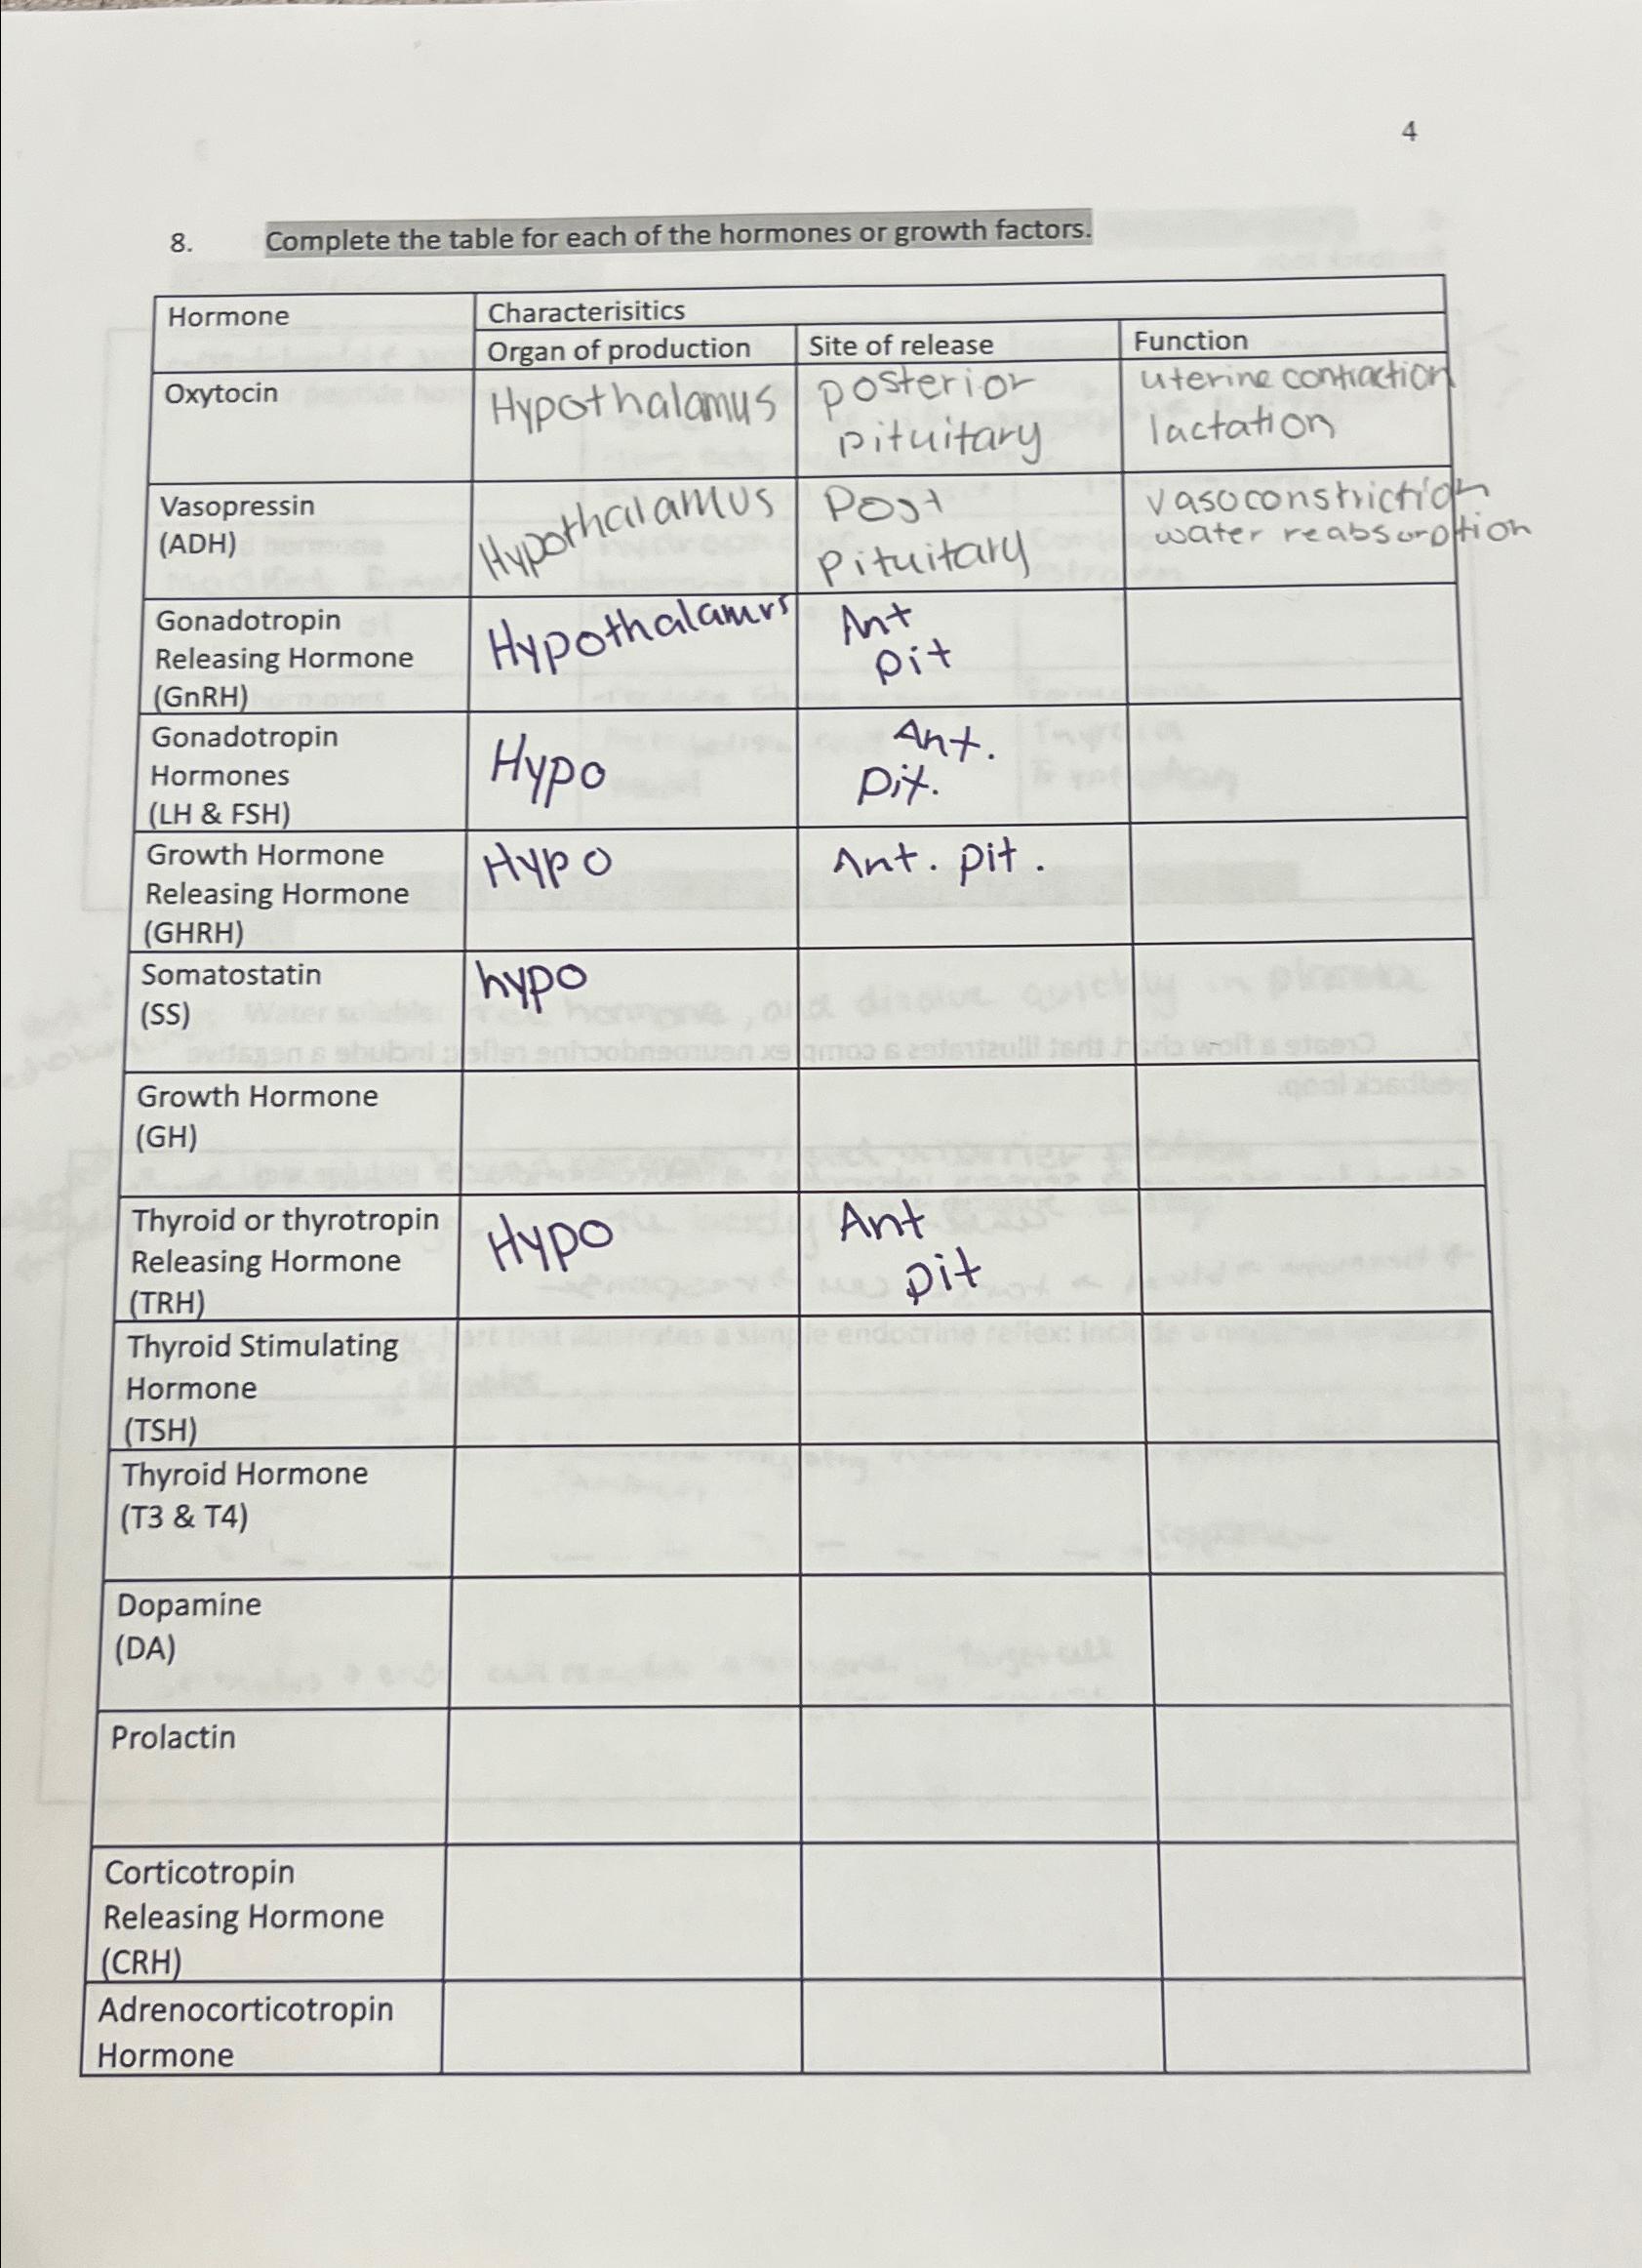 4
8. Complete the table for each of the hormones or growth factors.
Hormone
Characterisitics
Organ of production
Site of release
Function
Oxytocin
Hypothalamus
posterior
pituitary
uterine contraction
lactation
Vasopressin
(ADH)
Hypothalamus
Post
Pituitary
vasoconstriction
water reabsorption
Gonadotropin
Releasing Hormone
(GnRH)
Hypothalamus
Ant
pit
Gonadotropin
Hormones
(LH & FSH)
Hypo
Ant.
Pit.
Growth Hormone
Releasing Hormone
(GHRH)
Hypo
Ant. pit.
Somatostatin
(SS)
hypo
Growth Hormone
(GH)
Thyroid or thyrotropin
Releasing Hormone
(TRH)
Hypo
Ant
pit
Thyroid Stimulating
Hormone
(TSH)
Thyroid Hormone
(T3 & T4)
Dopamine
(DA)
Prolactin
Corticotropin
Releasing Hormone
(CRH)
Adrenocorticotropin
Hormone